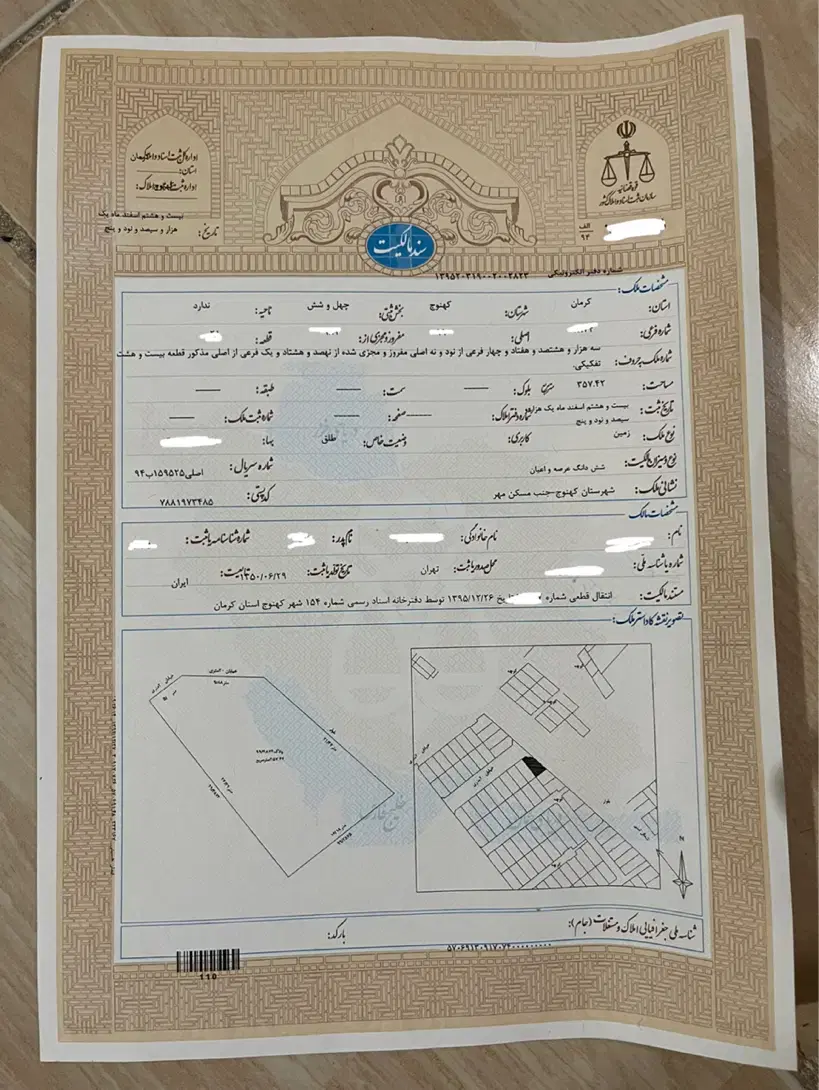 قوه قضائیه
سازمان ثبت اسناد و املاک کشور
اداره کل ثبت اسناد و املاک
استان: کرمان
اداره ثبت اسناد و املاک:
تاریخ: بیست و هشتم اسفند ماه یک
هزار و سیصد و نود و پنج
الف
۹۳
سند مالکیت
شماره دفتر الکترونیکی ۱۳۹۵۲۰۳۱۹۰۰۲۰۰۲۸۲۳
مشخصات ملک:
استان: کرمان شهرستان: کهنوج بخش ثبتی: چهل و شش ناحیه: ندارد
شماره فرعی: اصلی: مفروز و مجزی از: قطعه:
شماره ملک به حروف: سه هزار و هشتصد و هفتاد و چهار فرعی از نود و نه اصلی مفروز و مجزی شده از نهصد و هشتاد و یک فرعی از اصلی مذکور قطعه بیست و هشت
تفکیکی.
مساحت: ۳۵۷.۴۲ مترمربع بلوک: —— سمت: —— طبقه: ——
تاریخ ثبت: بیست و هشتم اسفند ماه یک هزار و
سیصد و نود و پنج شماره دفتر املاک: —— صفحه: —— شماره ثبت ملک: ——
نوع ملک: زمین کاربری: وضعیت خاص: طلق بها:
نوع و میزان مالکیت: شش دانگ عرصه و اعیان شماره سریال: اصلی ۱۵۹۵۲۵ب۹۴
نشانی ملک: شهرستان کهنوج-جنب مسکن مهر کد پستی: ۷۸۸۱۹۷۳۴۸۵
مشخصات مالک:
نام: نام خانوادگی: نام پدر: شماره شناسنامه یا ثبت:
شماره یا شناسه ملی: محل صدور یا ثبت: تهران تاریخ تولد یا ثبت: ۱۳۵۰/۰۶/۲۹ تابعیت: ایران
مستند مالکیت: انتقال قطعی شماره تاریخ ۱۳۹۵/۱۲/۲۶ توسط دفترخانه اسناد رسمی شماره ۱۵۴ شهر کهنوج استان کرمان
تصویر نقشه کاداستر ملک:
بلوار
خیابان
کوچه
کوچه
بلوار
کوچه
N
خلیج فارس
شناسه ملی جغرافیایی املاک و مستغلات (جام):
بارکد:
110